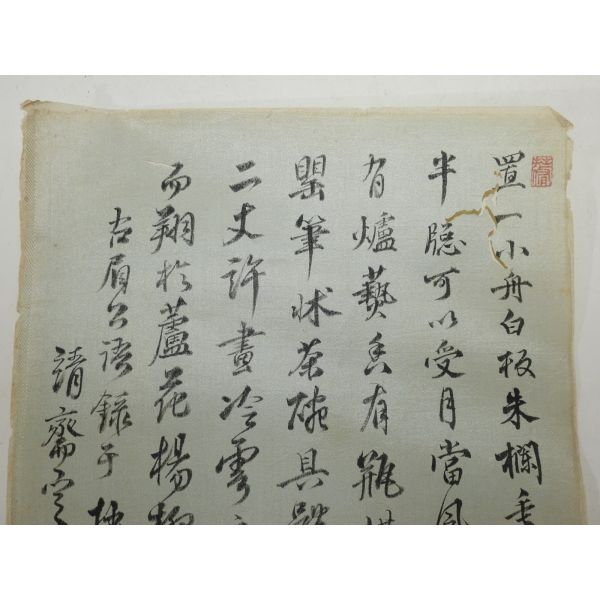 置一小舟白板朱欄
半隱可以受月當風
有爐爇香有瓶
罌筆牀茶碗具
二丈許畫冷雲
而翔於蘆花楊柳
右眉公語錄于
靖齋